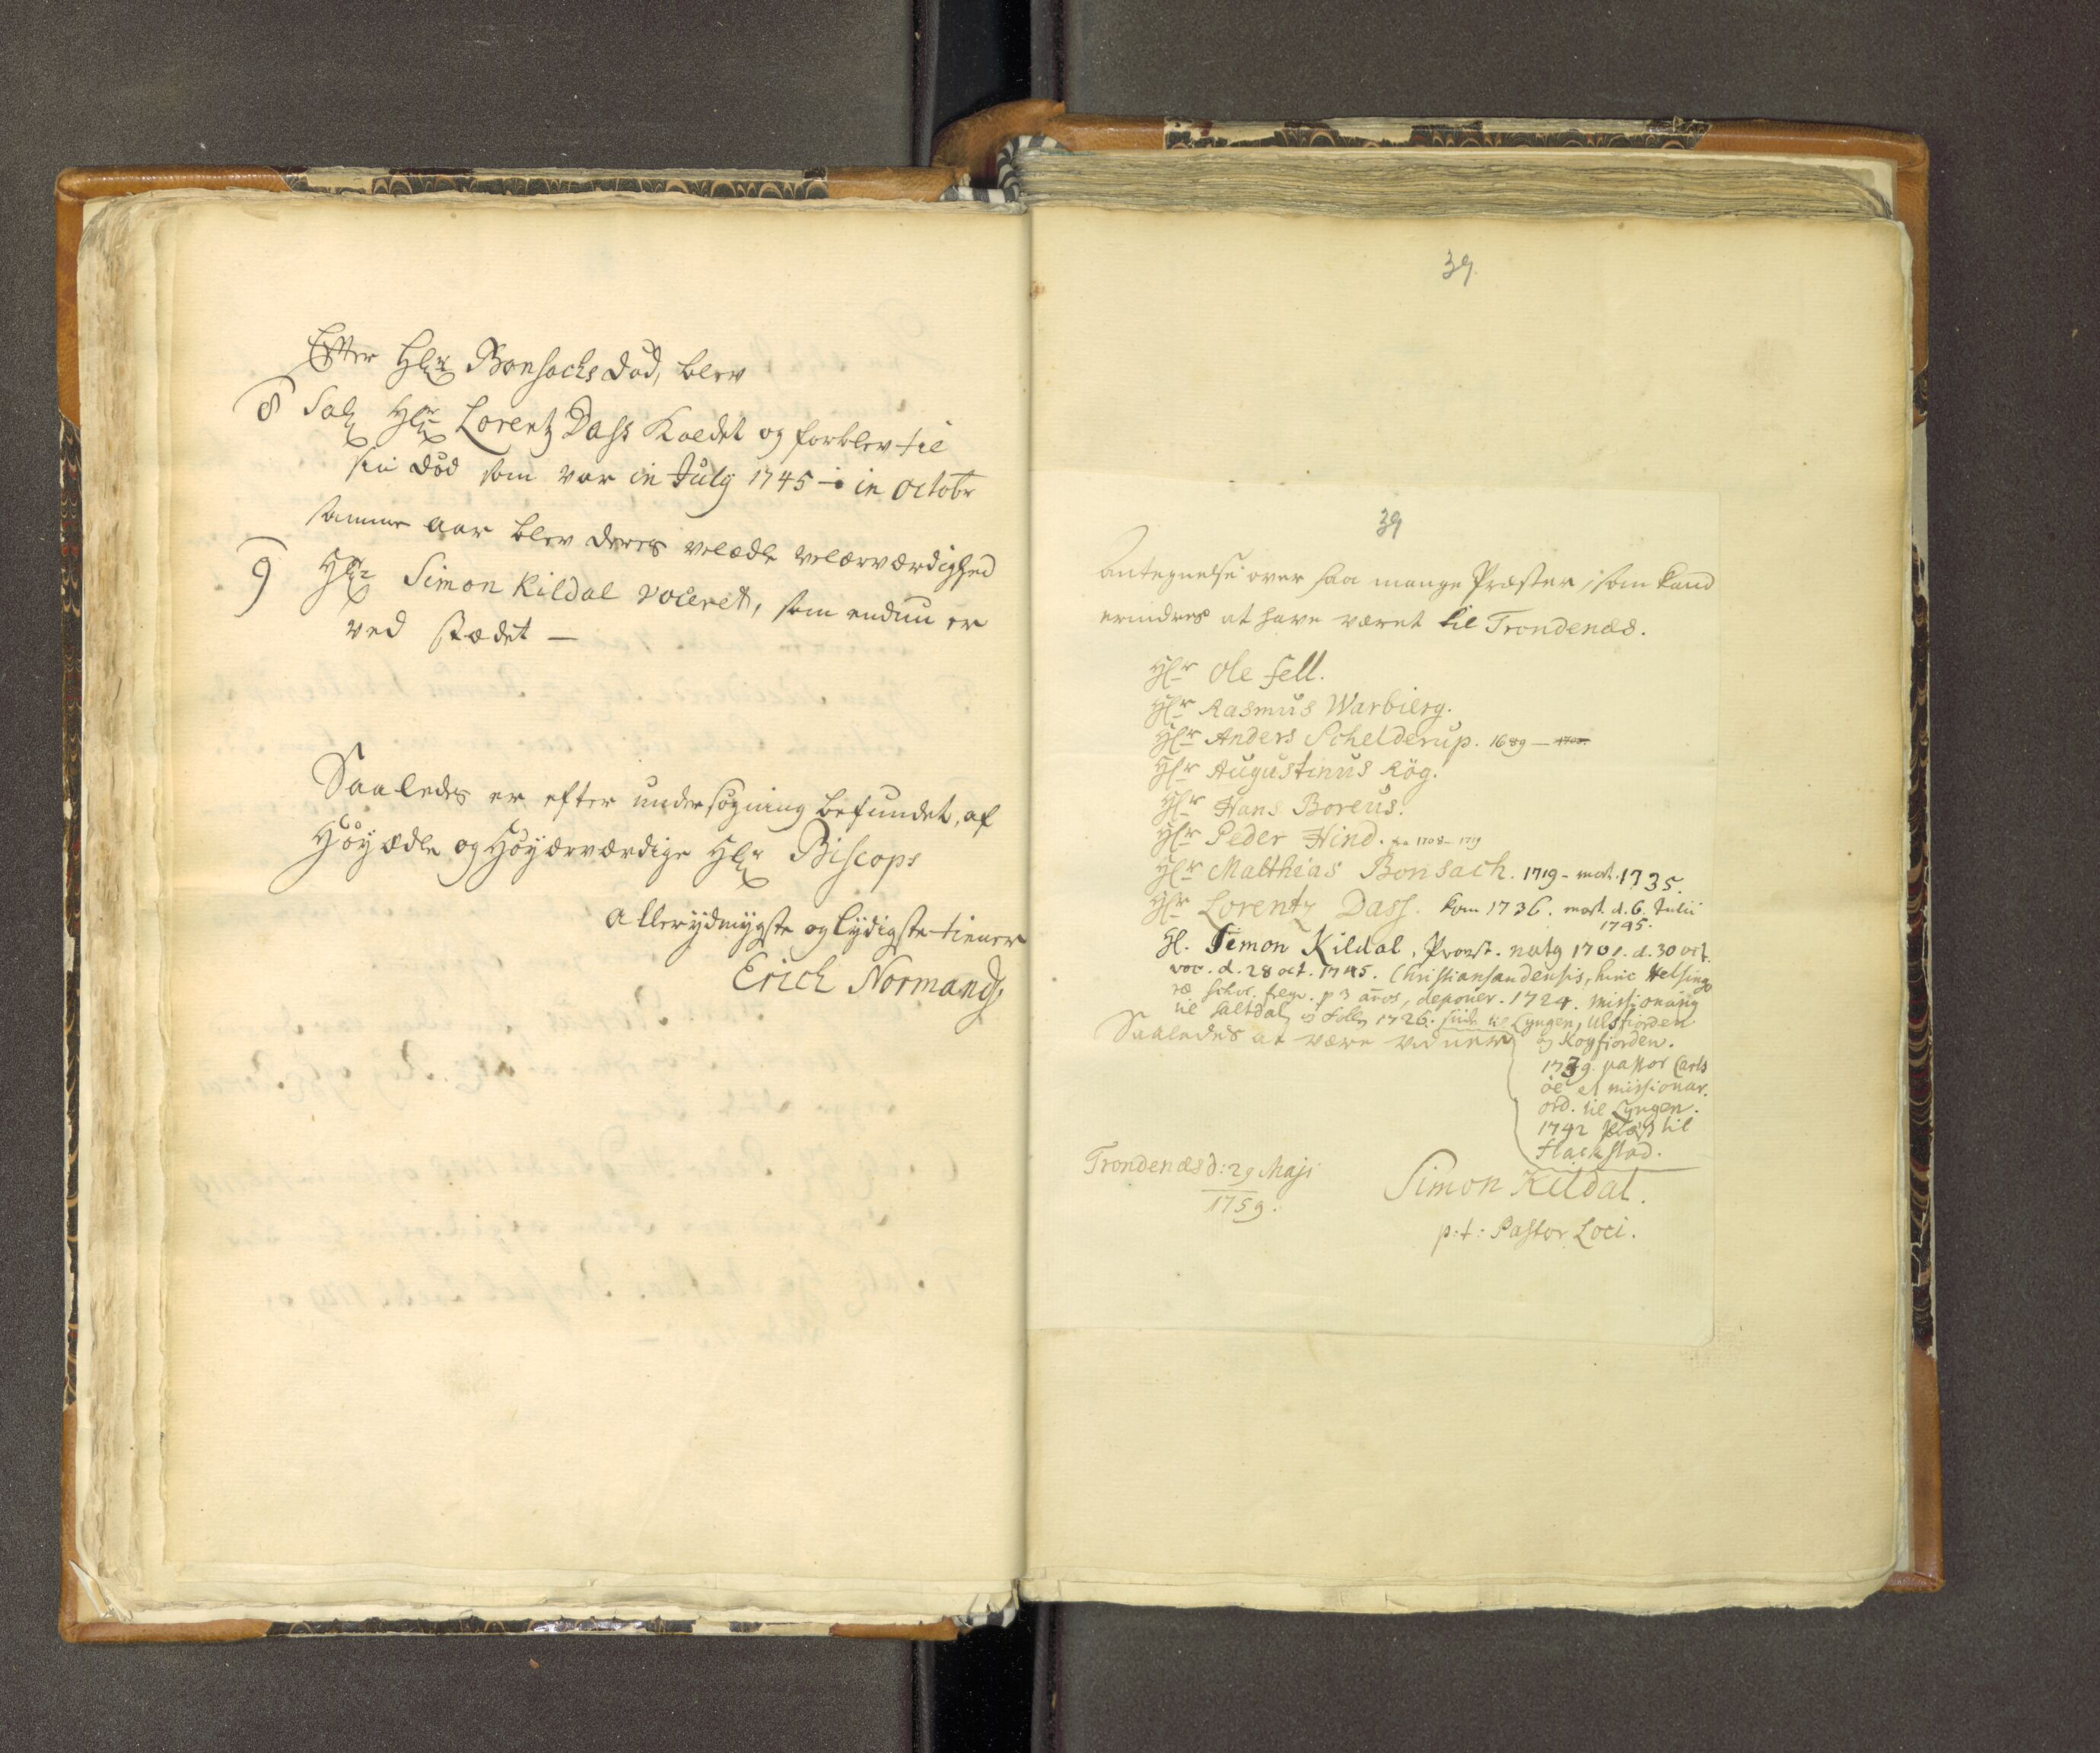 Efter Hr Bonsachs død, blev
8 Sal Hr Lorentz Dass Kaldet og forblev til
sin død som var in July 1745 – in octobr
samme aar blev deres velædle velærværdighed
9 Hr Simon Kildal voceret, som endnu er
ved stædet –
Saaledes er efter undersøgning befundet, af
Høyædle og Høyærværdige Hr Biscops
allerydmygste og lydigste tiener
Erich Normand
39
39
Antegnelse over saa mange Præster, som kand
erindres at have været til Trondenæs.
Hr Ole Fell.
Hr Rasmus Warbierg.
Hr Anders Schelderup. 1689 –
Hr Augustinus Røg.
Hr Hans Boreus.
Hr Peder Hind. 1708 – 1719
Hr Matthias Bonsach. 1719 – mort. 1735.
Hr Lorentz Dass. kom 1736. mort. d. 6. Julii
1745.
H. Simon Kildal, Provst. natg 1701. d. 30 oct.
voc. d. 28 oct. 1745. Christiansandensis, hinc Helsingo
ræ schol. p 3 años, deponer. 1724. missionarig
til Saltdal og Folle 1726. siide til Lyngen, Ulsfiorden
og Kogfiorden.
Saaledes at være vidner
1739. pastor Carls
öe et missionar.
ord. til Lyngen.
1742 til
Flackstad.
Trondenæs d: 29 Maji
1759.
Simon Kildal.
p:t: Pastor Loci.